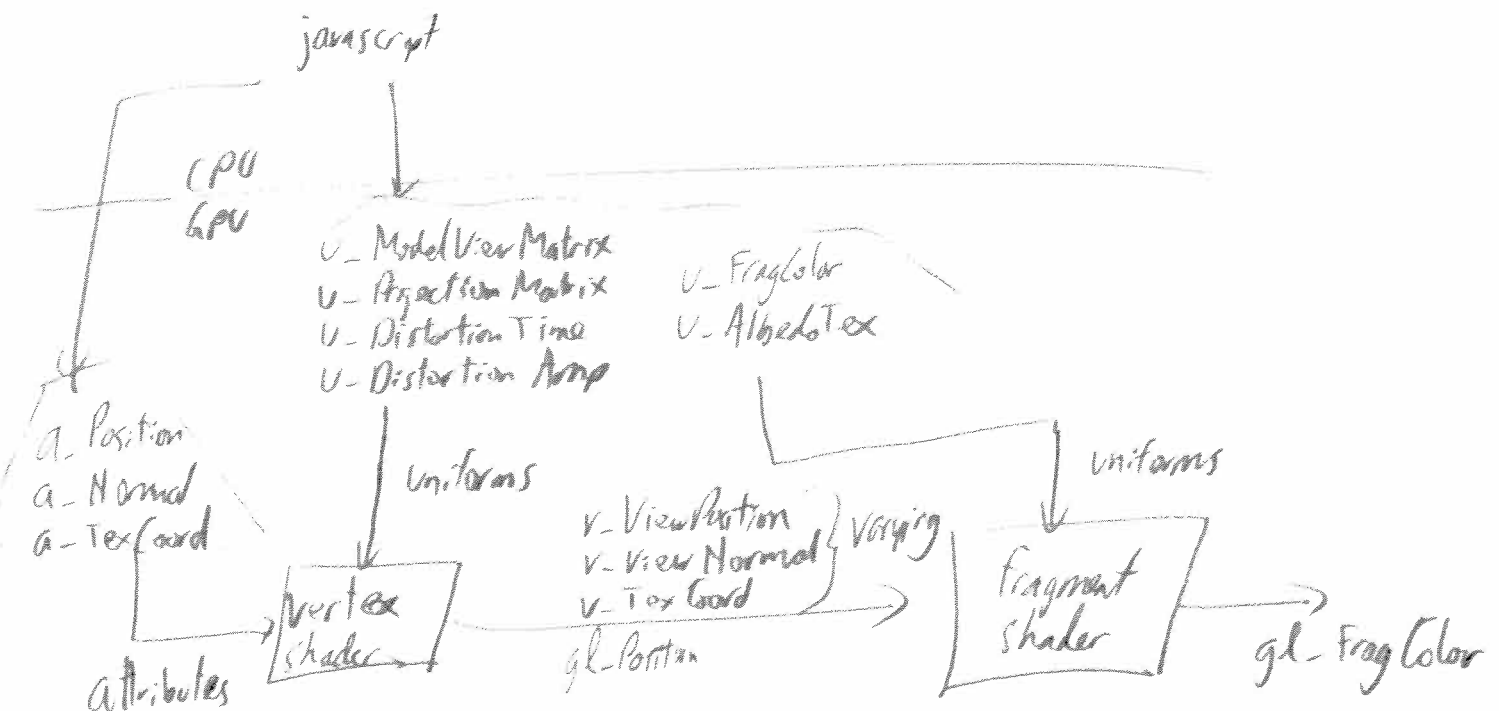 javascript
CPU
GPU
u_ModelViewMatrix
u_ProjectionMatrix
u_DistortionTime
u_DistortionAmp
u_FragColor
u_AlbedoTex
a_Position
a_Normal
a_TexCoord
uniforms
uniforms
v_ViewPosition
v_ViewNormal
v_TexCoord
varying
gl_Position
vertex
shader
fragment
shader
attributes
gl_FragColor